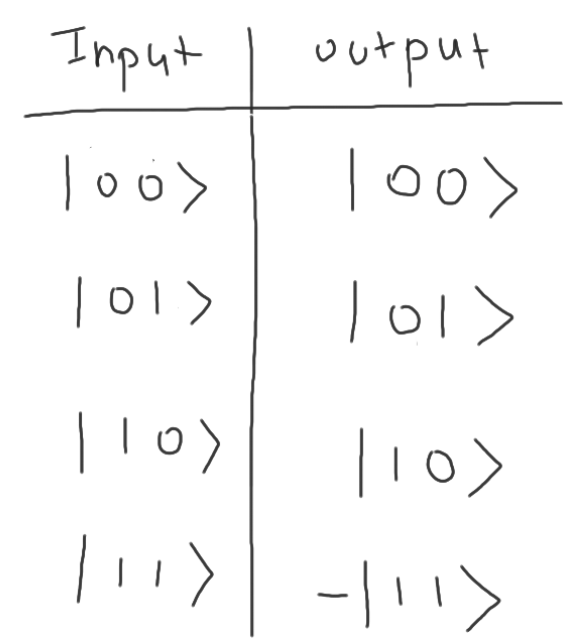 Input output
|00> |00>
|01> |01>
|10> |10>
|11> -|11>